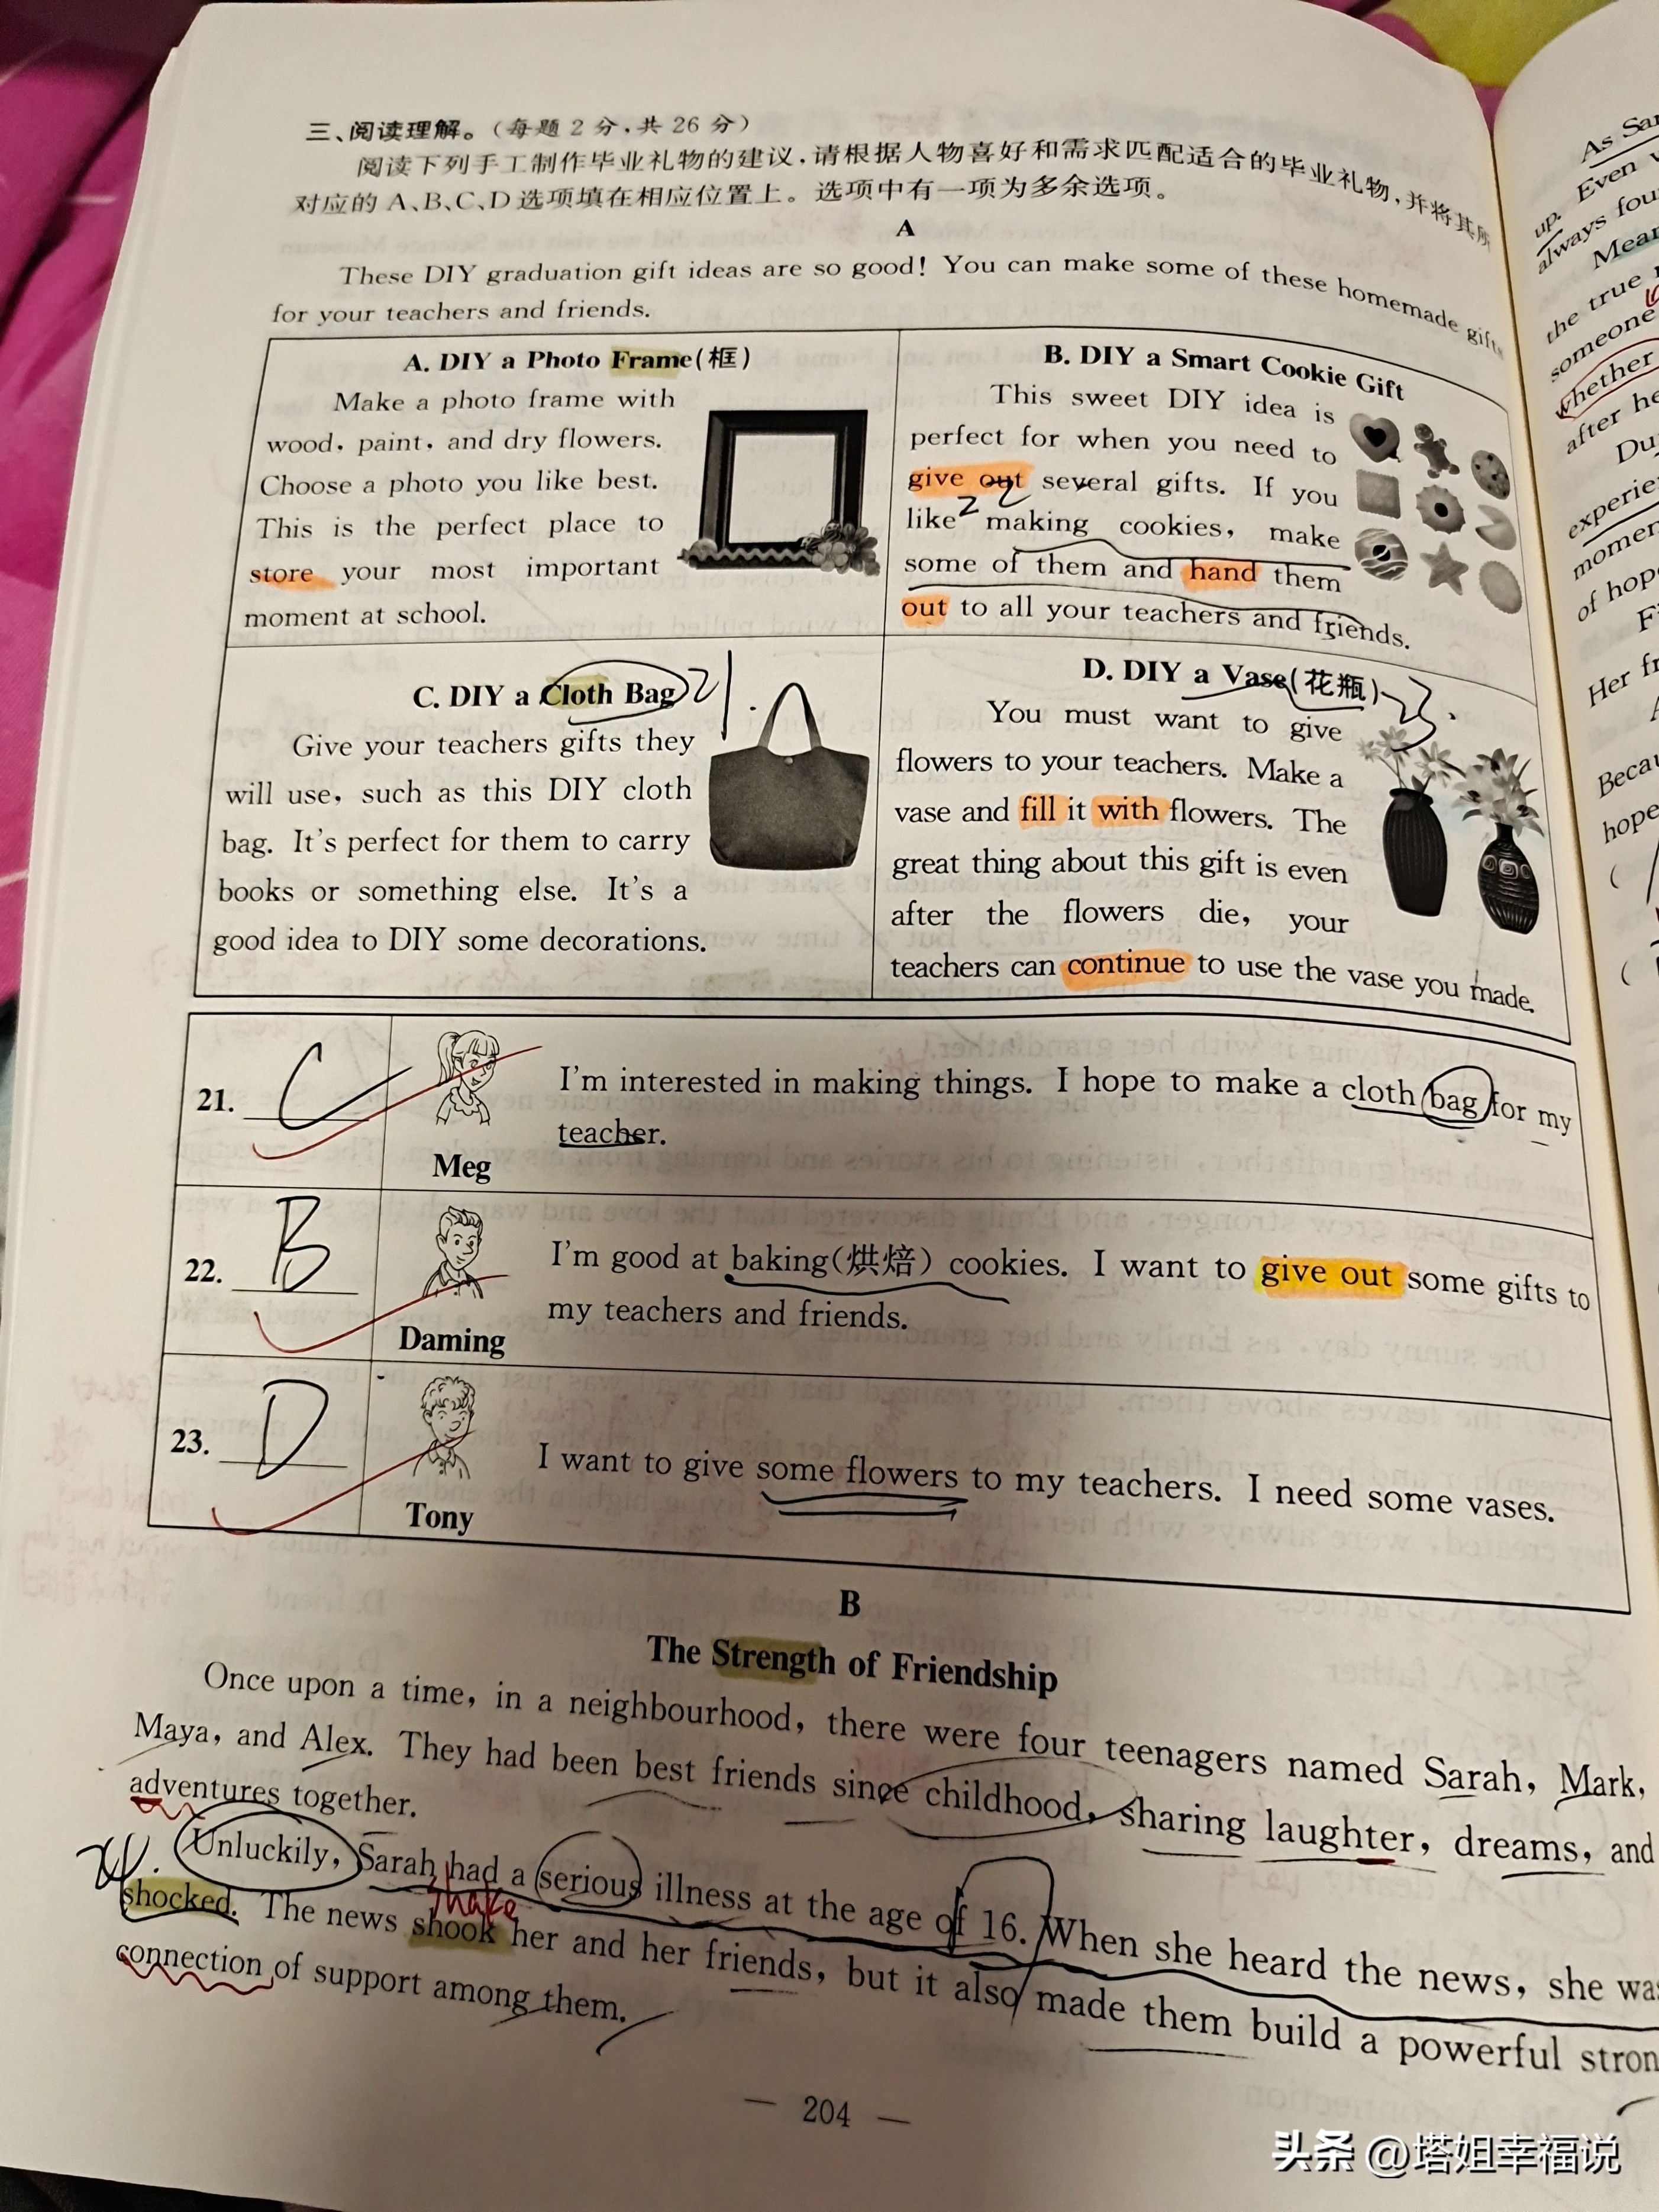 三、阅读理解。(每题 2 分,共 26 分)
阅读下列手工制作毕业礼物的建议,请根据人物喜好和需求匹配适合的毕业礼物,并将其所
对应的 A、B、C、D 选项填在相应位置上。选项中有一项为多余选项。
A
These DIY graduation gift ideas are so good! You can make some of these homemade gifts
for your teachers and friends.
A. DIY a Photo Frame(框)
Make a photo frame with
wood, paint, and dry flowers.
Choose a photo you like best.
This is the perfect place to
store your most important
moment at school.
B. DIY a Smart Cookie Gift
This sweet DIY idea is
perfect for when you need to
give out several gifts. If you
22
like making cookies, make
some of them and hand them
out to all your teachers and friends.
C. DIY a Cloth Bag 21.
Give your teachers gifts they
will use, such as this DIY cloth
bag. It's perfect for them to carry
books or something else. It's a
good idea to DIY some decorations.
D. DIY a Vase(花瓶) 23.
You must want to give
flowers to your teachers. Make a
vase and fill it with flowers. The
great thing about this gift is even
after the flowers die, your
teachers can continue to use the vase you made.
21. C
Meg
I'm interested in making things. I hope to make a cloth bag for my
teacher.
22. B
Daming
I'm good at baking(烘焙) cookies. I want to give out some gifts to
my teachers and friends.
23. D
Tony
I want to give some flowers to my teachers. I need some vases.
B
The Strength of Friendship
Once upon a time, in a neighbourhood, there were four teenagers named Sarah, Mark,
Maya, and Alex. They had been best friends since childhood, sharing laughter, dreams, and
adventures together.
24. Unluckily, Sarah had a serious illness at the age of 16. When she heard the news, she was
shake
shocked. The news shook her and her friends, but it also made them build a powerful
connection of support among them.
— 204 —
As
up. Even
always
the true
someone
whether
after
of
Her
hope
头条 @塔姐幸福说